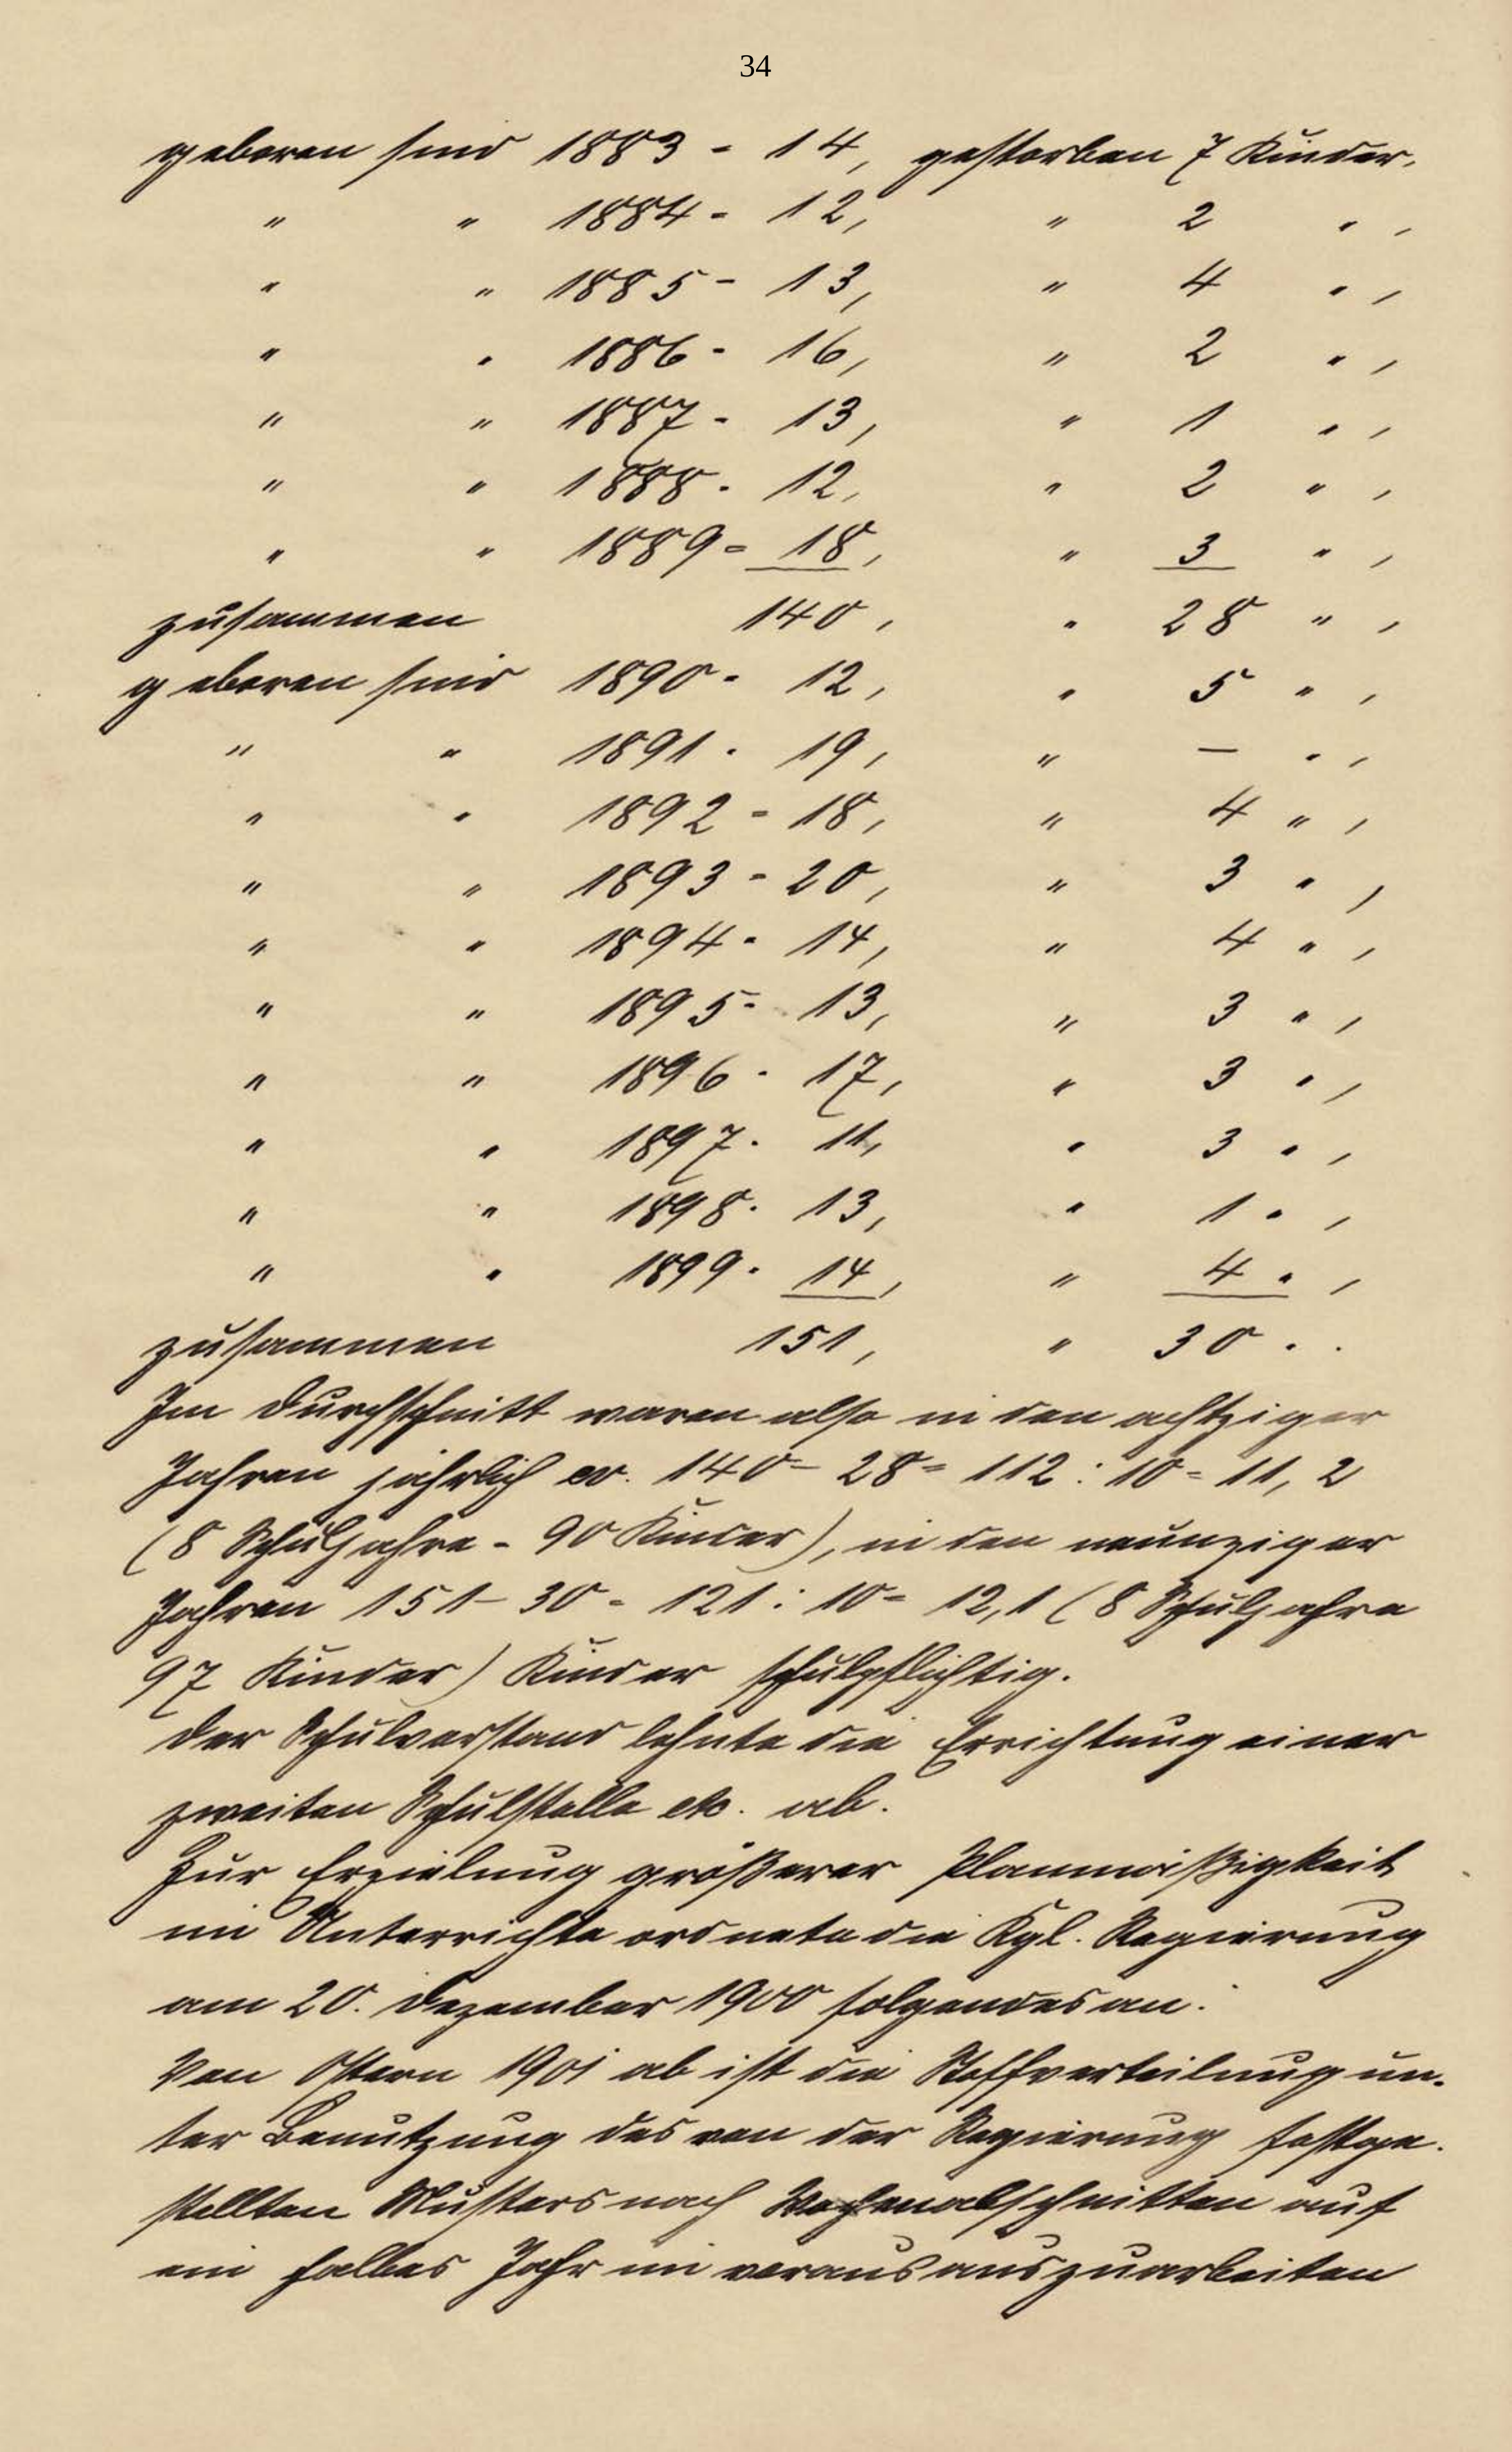 34
geboren sind 1883 - 14, gestorben 7 Kinder.
" " 1884 - 12, " 2 " ,
" " 1885 - 13, " 4 " ,
" " 1886 - 16, " 2 " ,
" " 1887 - 13, " 1 " ,
" " 1888 - 12, " 2 " ,
" " 1889 = 18, " 3 " ,
zusammen 140, " 28 " ,
geboren sind 1890 - 12, " 5 " ,
" " 1891 - 19, " — " ,
" " 1892 - 18, " 4 " ,
" " 1893 - 20, " 3 " ,
" " 1894 - 14, " 4 " ,
" " 1895 - 13, " 3 " ,
" " 1896 - 17, " 3 " ,
" " 1897 - 11, " 3 " ,
" " 1898 - 13, " 1 " ,
" " 1899 - 14, " 4 " ,
zusammen 151, " 30 " .
Im Durchschnitt waren also in den achtziger
Jahren jährlich 140 - 28 = 112 : 10 = 11,2
(8 Schuljahre - 90 Kinder), in den neunziger
Jahren 151 - 30 = 121 : 10 = 12,1 (8 Schuljahre
97 Kinder) Kinder schulpflichtig.
Der Schulvorstand lehnte die Errichtung einer
zweiten Schulstelle etc. ab.
Zur Erzielung größerer Planmäßigkeit
im Unterrichte ordnete die Kgl. Regierung
am 20. Dezember 1900 folgendes an:
Von Ostern 1901 ab ist die Stoffverteilung un-
ter Benutzung des von der Regierung festge-
stellten Musters nach Wochenabschnitten auf
ein halbes Jahr im voraus auszuarbeiten